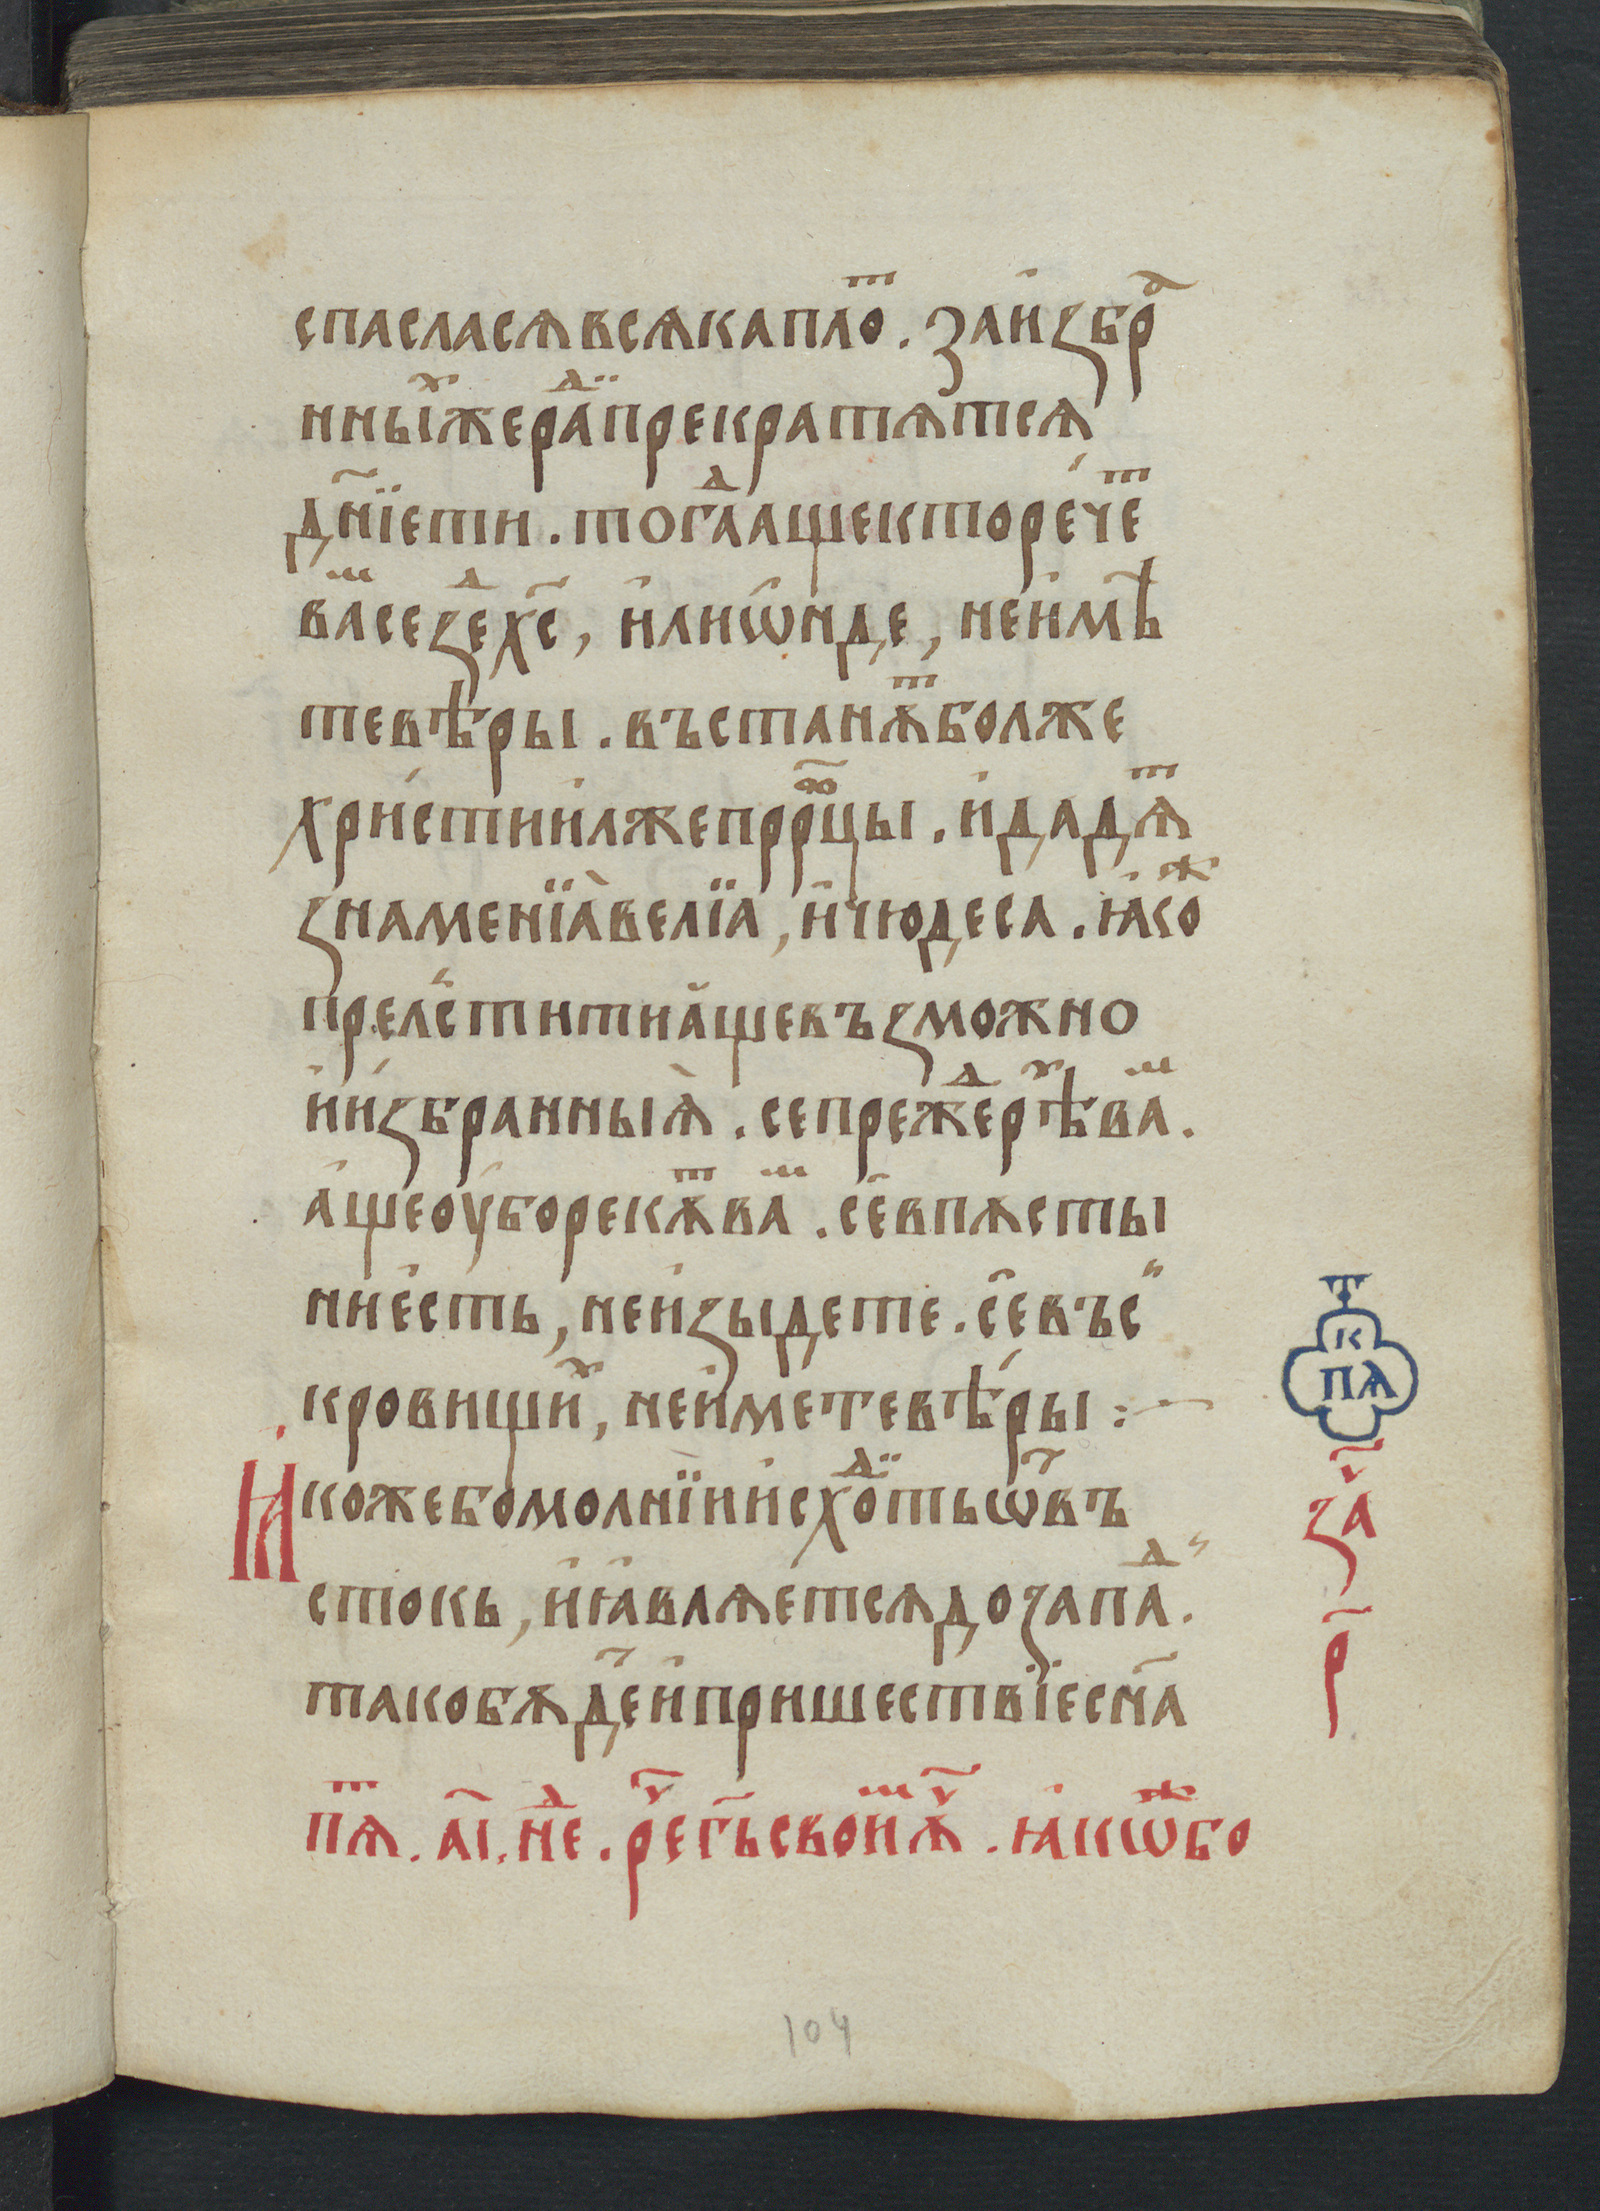 спасласѧвсѧкаплоⷮ. Заи҆збраⷣ
нныⷯ҆жераⷣ҇ипрекратѧтсѧ
дн҃їети. тогаⷣ҇ащекторе́четⷮ
ваⷨсезⷣех҃с, и҆лиѡ҆нде, неи҆мѣ
тевѣры. въстанѫⷮболже
хри́стиии҆лжепрⷪ҇рцы. и҆дадѧⷮ
знаменїа҆велїа, и҆чюдеса. ꙗ҆коⷤ
прелⸯститиа҆щевъзможно
и҆и҆збранныѧ҆. сепреⷣжереⷯѣваⷨ.
а҆щеоу҆борекѫⷮваⷨ. се҆впѫсты
ние҆сть, неи҆зыдете. се҆въсⸯ
кровищиⷯ, неи҆метевѣры :~
Ꙗ҆кожебомолнїии҆схоⷣитьѿвъ
стокь, и҆ꙗ҆влѧе҆тсѧдозапаⷣ.
такобѫде҆и҆пришествїесн҃а
пѧⷮ. а҃і. неⷣ. ре҃гⷭ҇ьсвоиⷨѫⷱ҇. ꙗ҆кѡⷤбо
к
пѧⷮ
заⷱ҇
р҃
104